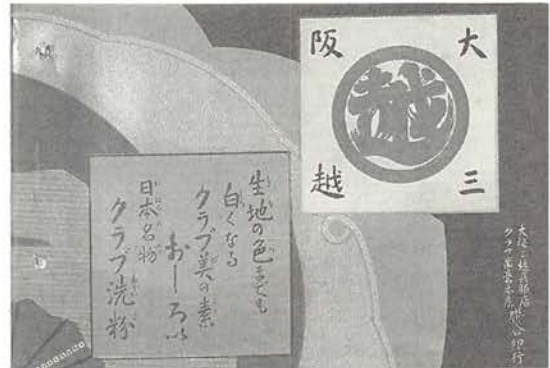 大阪
三越
越
生地の色までも
白くなる
クラブ美の素
おしろい
日本名物
クラブ洗粉
大阪三越呉服店
クラブ